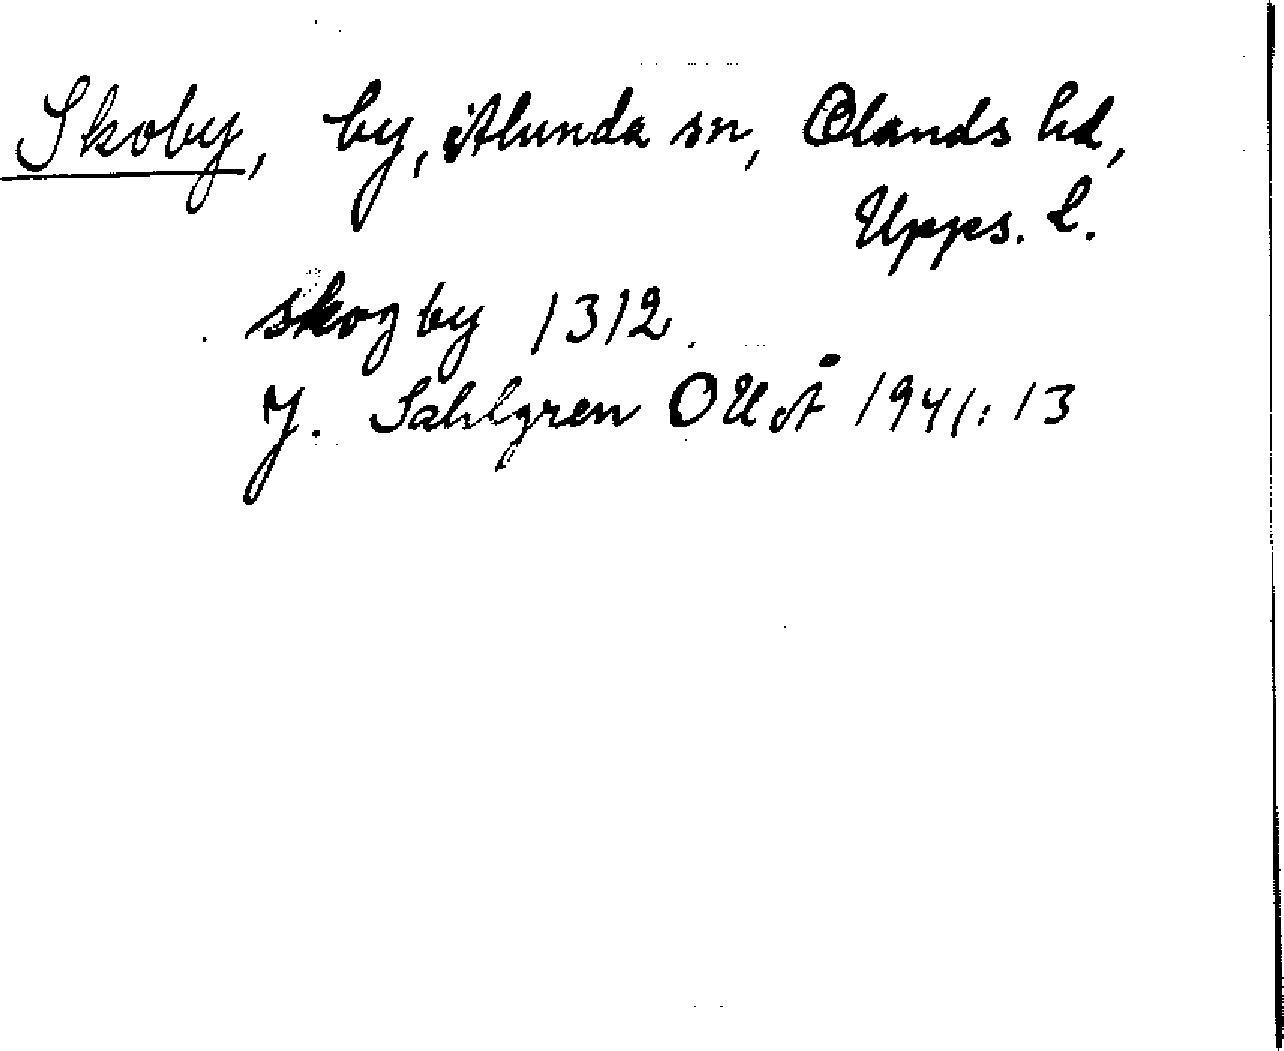 Skoby, by, Alunda sn, Olands hd,
Upps. l.
skogby 1312.
J. Sahlgren OUÅ 1941: 13